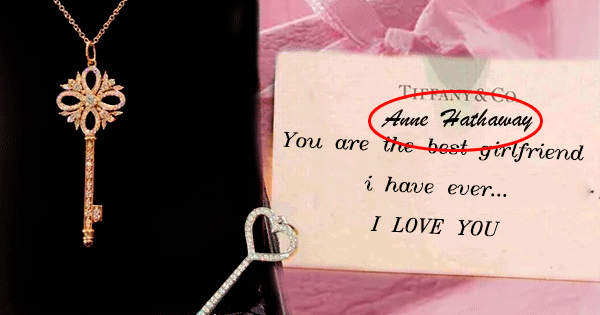 TIFFANY & CO
Anne Hathaway
You are the best girlfriend
i have ever...
I LOVE YOU